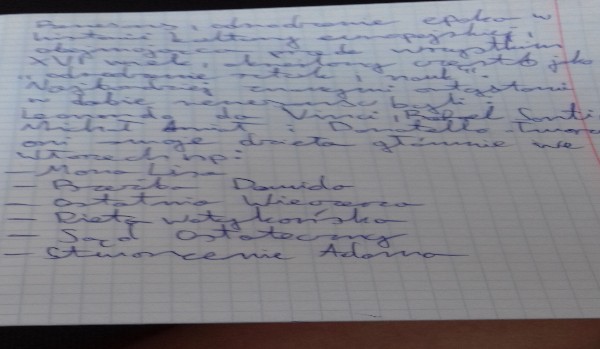 Renesans, odrodzenie epoka w
historii kultury europejskiej,
obejmująca przede wszystkim
XVI wiek, określany często jako
"odrodzenie sztuk i nauk".
Najbardziej znanymi artystami
w dobie renesansu byli:
Leonardo da Vinci, Rafael Santi
Michał Anioł i Donatello. Tworzyli
oni swoje dzieła głównie we
Włoszech np:
- Mona Lisa
- Rzeźba Dawida
- Ostatnia Wieczerza
- Pieta watykańska
- Sąd Ostateczny
- Stworzenie Adama